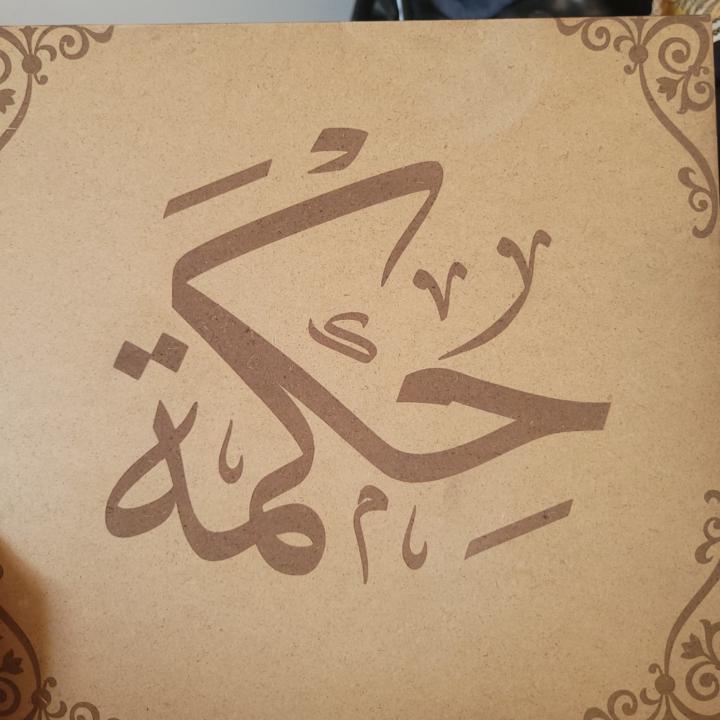 حِكْمَة